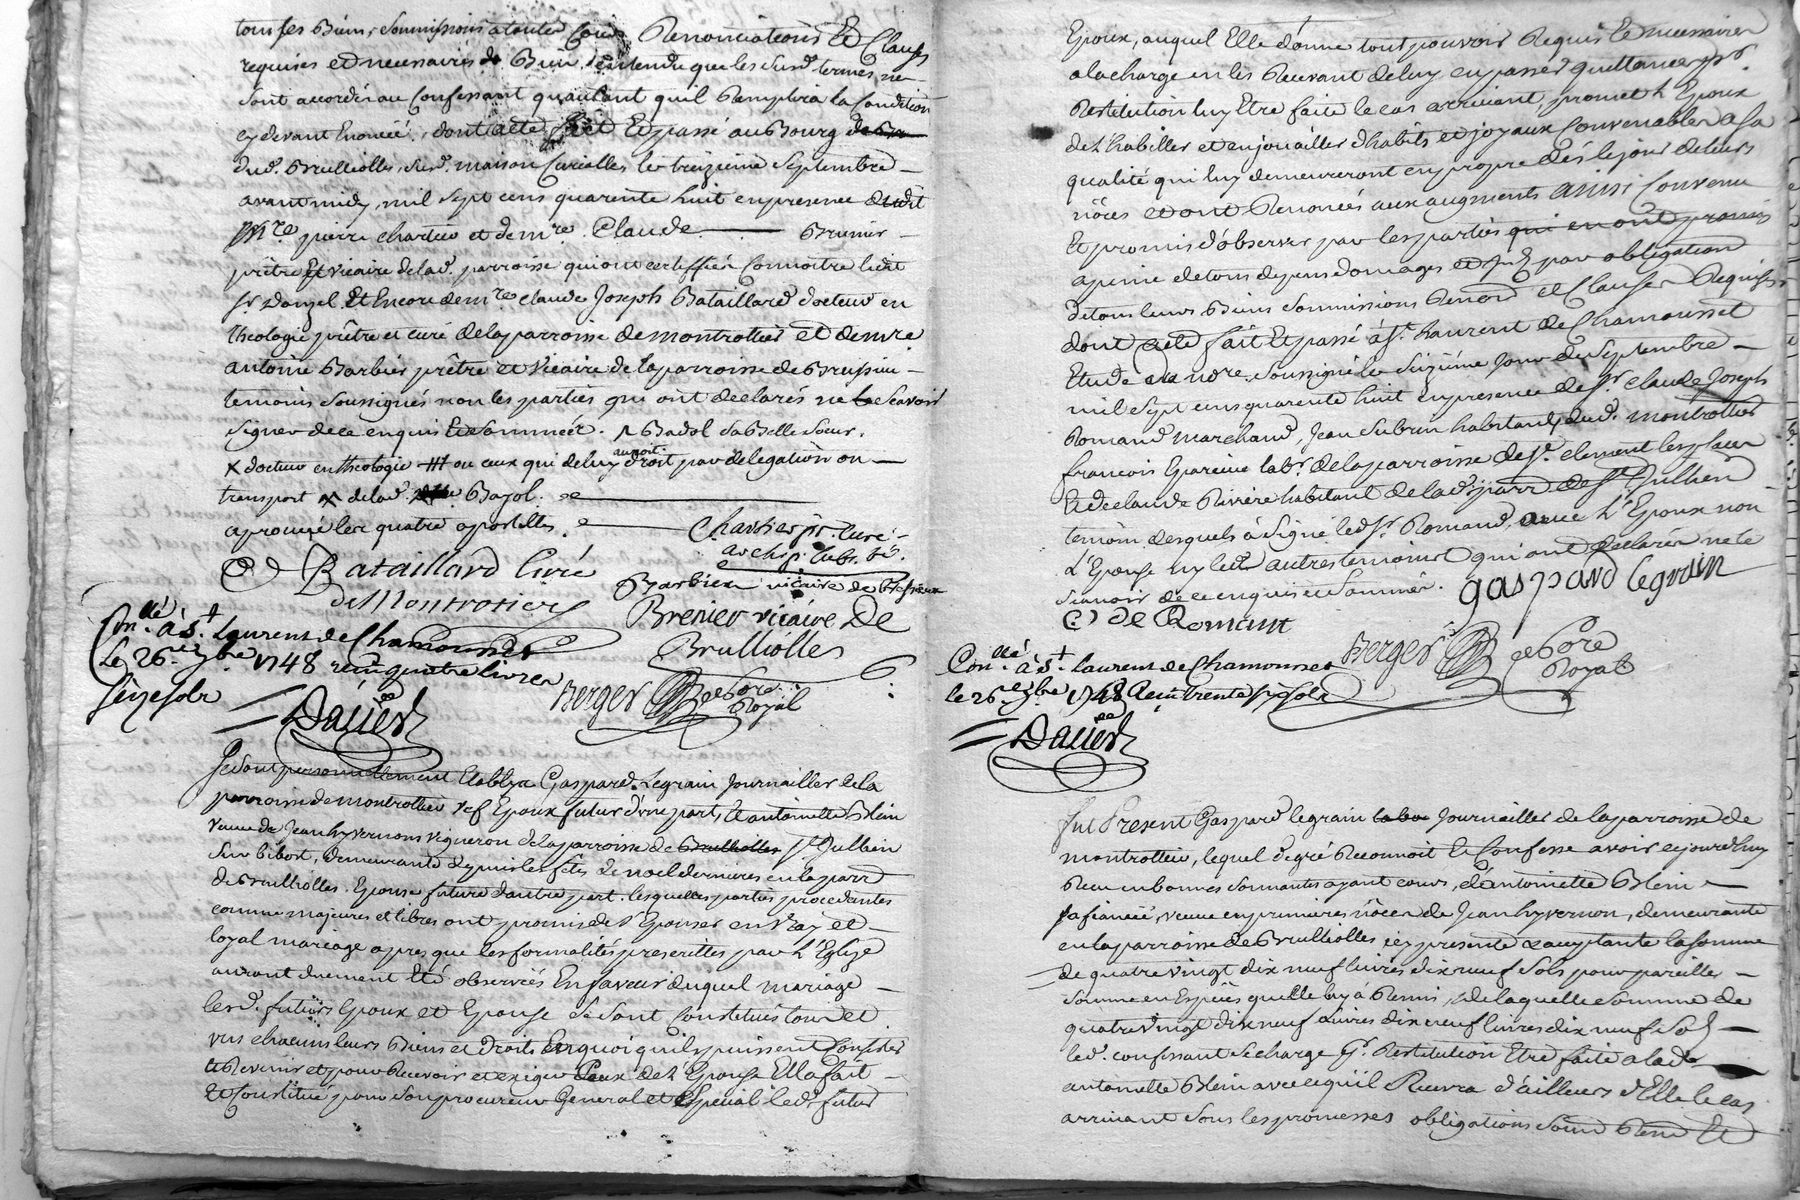 tous ses Biens, soumissions a toutes Cours Renonciations Et Clauses
requises et necessaires de Bien Entendu que les susd. termes ne
sont accordés au Confessant qu'autant quil Remplira la Condition
cy devant Enoncée, dont acte fait Et passé au Bourg de Br
dud. Brulliolles, susd. maison Curialles le treizieme Septembre
avant midy, mil sept cens quarente huit en presence dudit
Mre. pierre chartier et de mre. Claude Brunier
prêtre Et vicaire de lad. parroisse qui ont certiffiés Connoitre ledit
Sr. Danzel Et Encore de mre claude Joseph Bataillard docteur en
theologie prêtre et curé de la parroisse de montrottier et de mre
antoine Barbier prêtre et vicaire de la parroisse de Brussieu
temoins soussignés non les parties qui ont declarés ne le scavoir
signer de ce enquis Et Sommées. Badol sa Belle soeur.
X docteur en theologie ou ceux qui de luy auront droit par delegation ou
transport X de lad. Bazol.
aprouvé les quatre apostilles.
Chartier pr. Curé
archip. Subs. té.
Bataillard Curé
de Montrotier
Barbier vicaire de Bressieux
Brenier vicaire De
Brulliolles
Con.llé à St. Laurent de Chamousset
le 26e. 7bre 1748 reçu quatre livres
seize sols
Berger Notre
Royal
Dalier
Se sont personnellement Etablys Gaspard Legrain Journallier de la
parroisse de montrottier vef Epoux futur d'une part, Et antoinette Blein
veuve de Jean hyvernons vigneron de la parroisse de Brulliolles St Jullien
sur bibost, demeurante depuis les fêtes de noel dernieres en la parr
de Brulliolles. Epouse future d'autre part. lesquelles parties procedantes
comme majeures et libres ont promis de s'Epouser en vray et
loyal mariage apres que les formalités prescrittes par L'Eglize
auront duement Eté observées En faveur duquel mariage
lesd. futurs Epoux et Epouse Se sont Constitués tous et
uns chacuns leurs Biens et Droits En quoi qu'ils puissent Consister
et Revenir et pour Recevoir et exiger Ceux de L'Epouse Elle a fait
Et Constitué pour son procureur General et Special led. futur
Epoux, auquel Elle donne tout pouvoir Requis Et necessaires
a la charge en les Recevant de luy en passer quittance pr.
Restitution luy Etre faite le cas arrivant, promet L'Epoux
de L'habiller et enjouailler d'habits et joyaux Convenables a sa
qualité qui luy demeureront en propre dés le jour de leurs
nôces et ont Renoncés aux augments ainsi Convenu
Et promis d'observer par les parties qui en ont promis
a peine de tous depens domages et Jnt. par obligation
de tous leurs Biens soumissions Renon et Clauses Requises
dont acte fait Et passé à St. Laurent de Chamousset
Etude du nore. soussigné le Seizième Jour de Septembre
mil sept cens quarente huit en presence de Sr. claude Joseph
Romand marchand, Jean Subrin habitants dud. montrottier
francois Epareine labr. de la parroisse de St. clement les places
Et de claude Riviere habitant de lad. parr de St Jullien
temoins desquels à Signé led. Sr. Romand, avec L'Epoux non
L'Epouse ny les autres temoins qui ont declarés ne le
scavoir de ce enquis et Sommés.
gaspard legrain
C J de Romant
Berger Notre
Royal
Con.llé à St. laurent de Chamousset
le 26e 7bre 1748 Recu trente six sols
Dalier
fut Present Gaspard legrain labou Journallier de la parroisse de
montrottier, lequel de gré Reconnoit Et Confesse avoir cejourd'huy
Recu en bonnes sonnantes ayant cours, d'antoinette Blein
sa fiancée, veuve en premieres nôces de Jean hyvernon, demeurante
en la parroisse de Brulliolles icy presente & acceptante la somme
de quatre vingt dix neuf livres dix neuf sols pour pareille
somme en Espèces quelle luy à Remis, de laquelle somme de
quatre vingt dix neuf Livres dix neuf livres dix neuf Sols
led. confessant se charge pr. Restitution Etre faite a lade
antoinette Blein avec ce qu'il Recevra d'ailleurs d'Elle le cas
arrivant sous les promesses obligations soum Renon Et